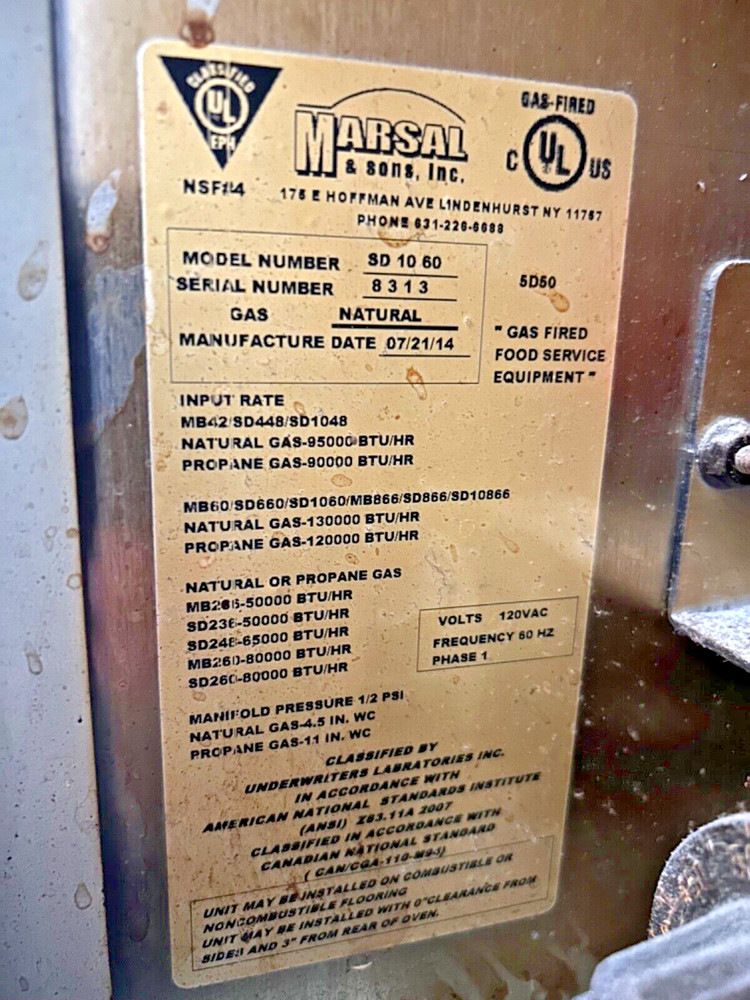 CLASSIFIED
UL
EPH
NSF#4
MARSAL
& SONS, Inc.
GAS-FIRED
C UL US
175 E HOFFMAN AVE LINDENHURST NY 11757
PHONE 631-226-6688
MODEL NUMBER SD 10 60
SERIAL NUMBER 8313
GAS NATURAL
MANUFACTURE DATE 07/21/14
5D50
" GAS FIRED
FOOD SERVICE
EQUIPMENT "
INPUT RATE
MB42/SD448/SD1048
NATURAL GAS-95000 BTU/HR
PROPANE GAS-90000 BTU/HR
MB60/SD660/SD1060/MB866/SD866/SD10866
NATURAL GAS-130000 BTU/HR
PROPANE GAS-120000 BTU/HR
NATURAL OR PROPANE GAS
MB236-50000 BTU/HR
SD236-50000 BTU/HR
SD248-65000 BTU/HR
MB260-80000 BTU/HR
SD260-80000 BTU/HR
VOLTS 120VAC
FREQUENCY 60 HZ
PHASE 1
MANIFOLD PRESSURE 1/2 PSI
NATURAL GAS-4.5 IN. WC
PROPANE GAS-11 IN. WC
CLASSIFIED BY
UNDERWRITERS LABRATORIES INC.
IN ACCORDANCE WITH
AMERICAN NATIONAL STANDARDS INSTITUTE
(ANSI) Z83.11A 2007
CLASSIFIED IN ACCORDANCE WITH
CANADIAN NATIONAL STANDARD
( CAN/CGA-110-M94)
UNIT MAY BE INSTALLED ON COMBUSTIBLE OR
NONCOMBUSTIBLE FLOORING
UNIT MAY BE INSTALLED WITH 0"CLEARANCE FROM
SIDES AND 3" FROM REAR OF OVEN.